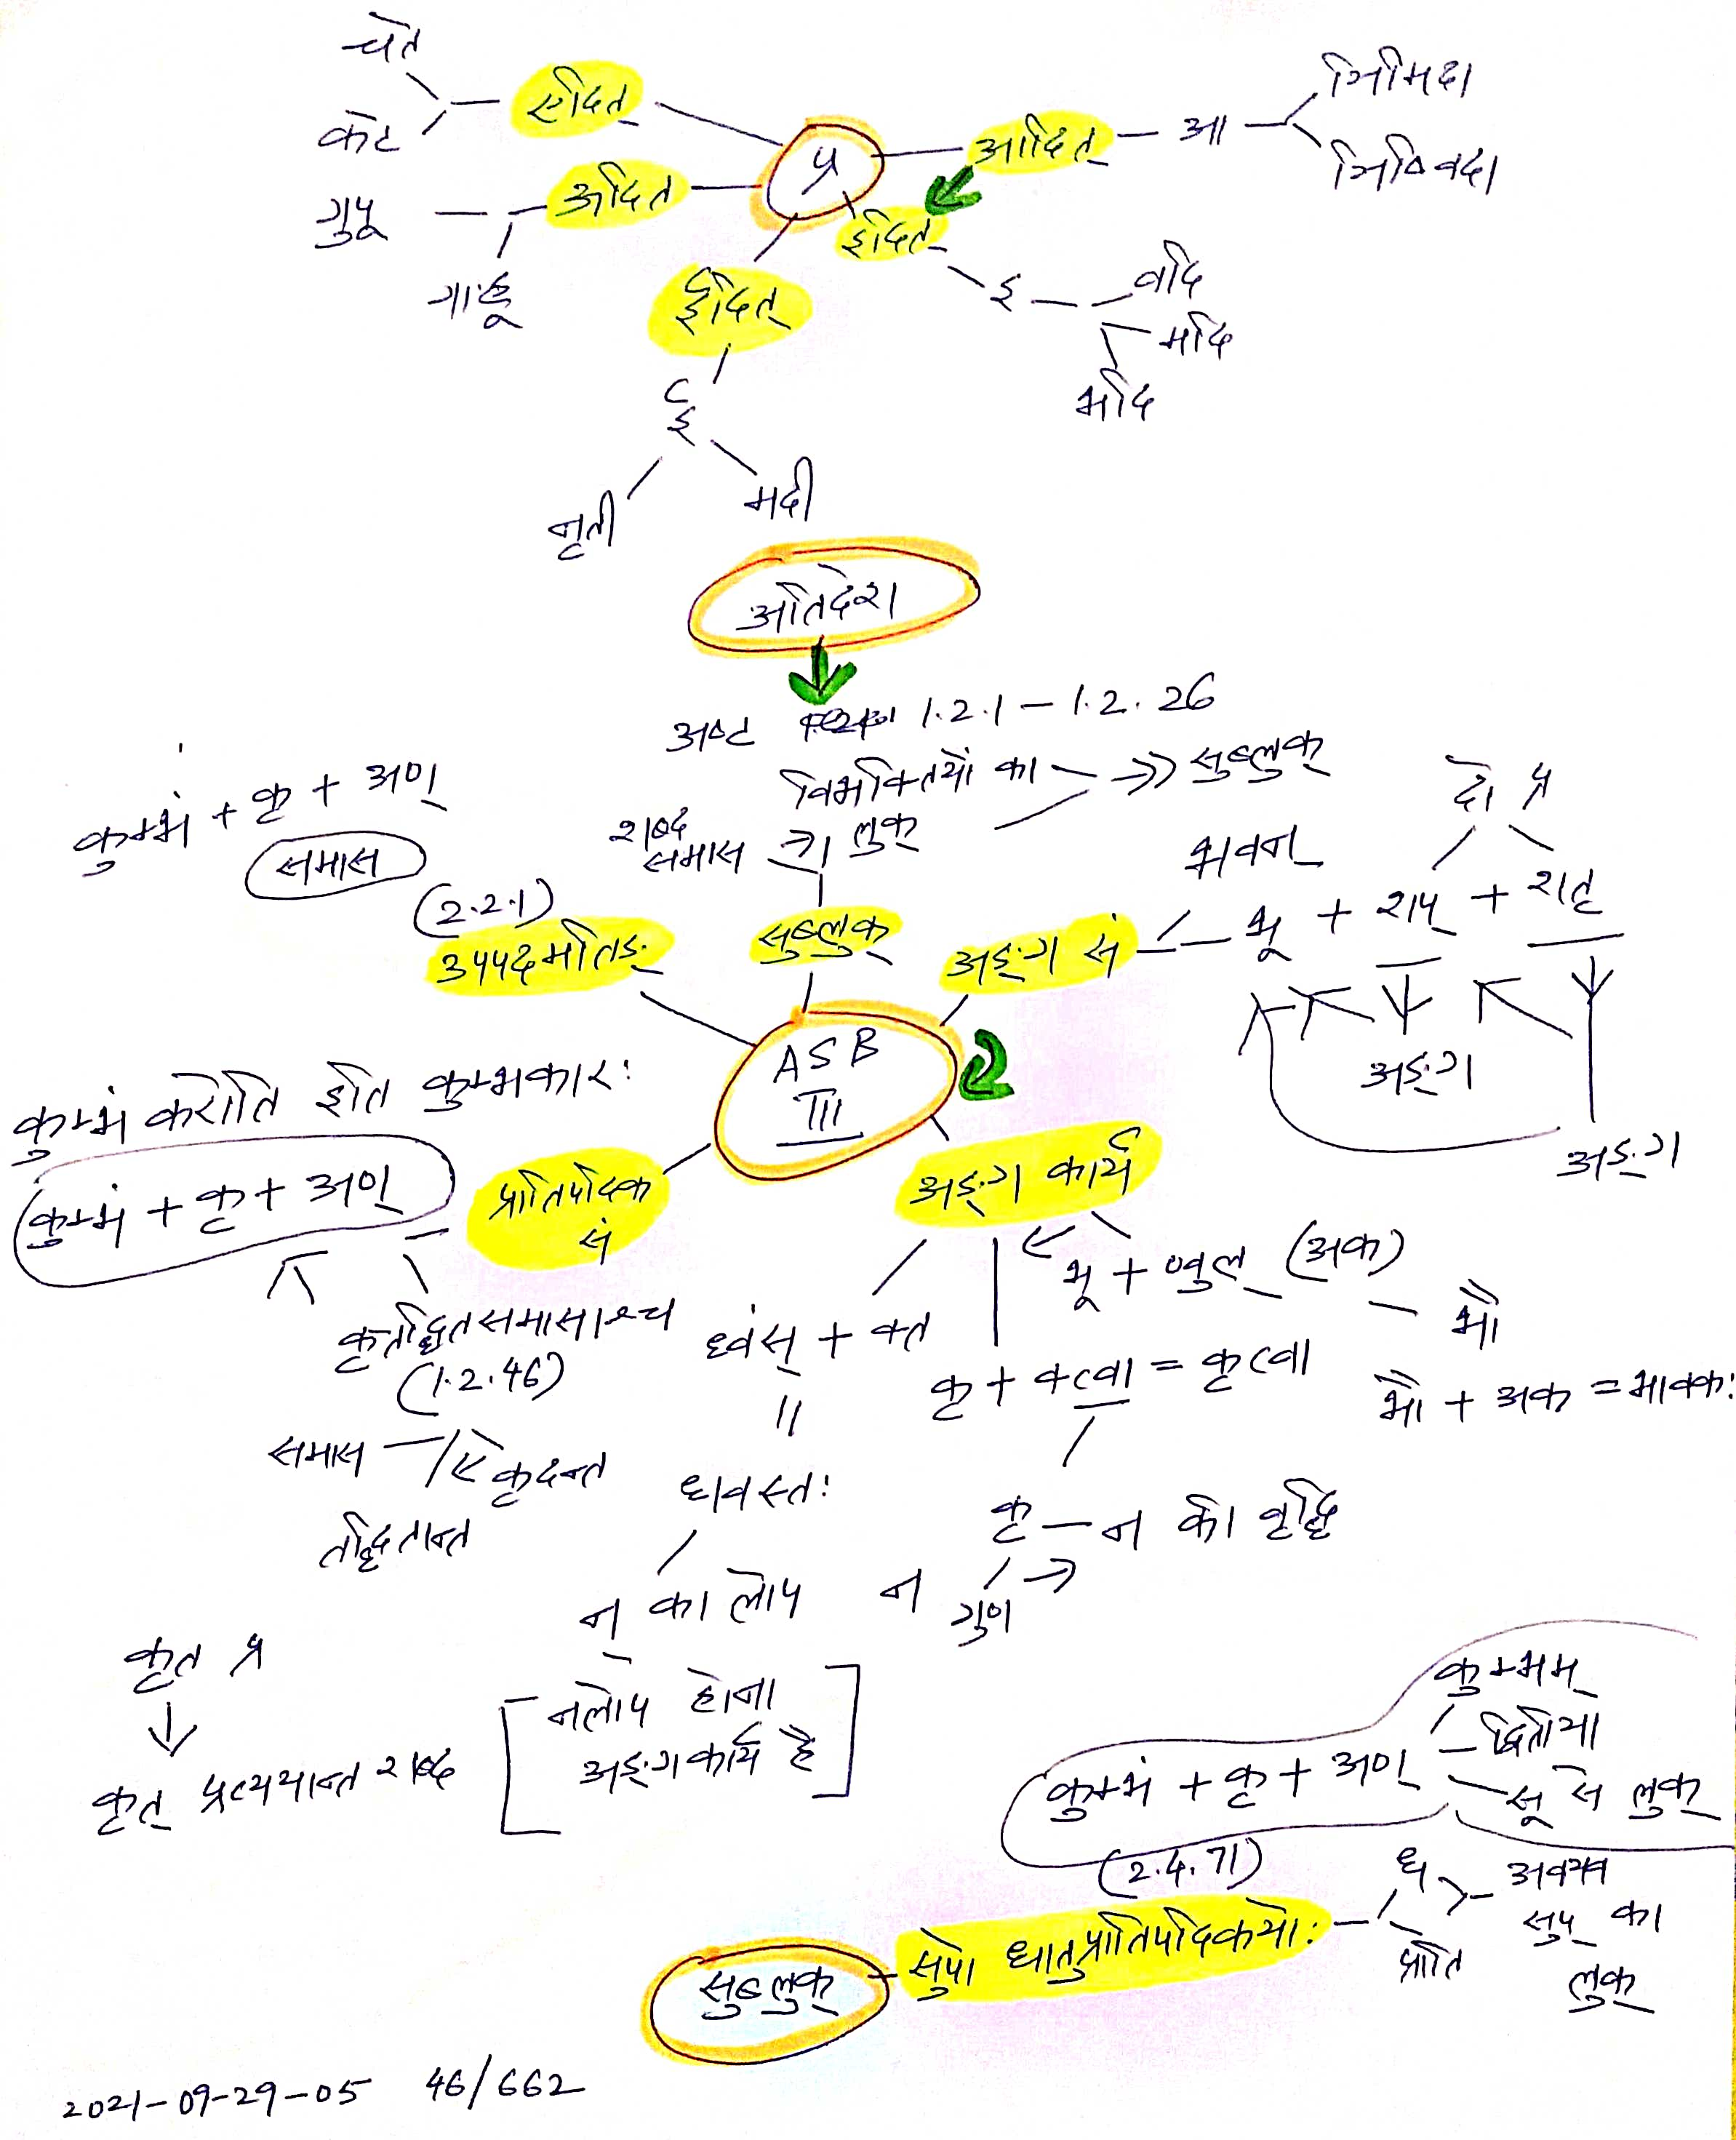 चते
कटे
एदित्
प्र
आदित् — आ
ञिमिदा
ञिष्विदा
ऊदित्
गुपू
गाहू
इदित् — इ
वदि
मदि
भदि
ईदित्
ई
नृती
मदी
अतिदेश
1.2.1 – 1.2.26
विभक्तियों का
लुक्
सुब्लुक्
शब्द
समास
कुम्भं + कृ + अण्
समास
(2.2.1)
उपपदमतिङ्
सुब्लुक्
अङ्ग सं
दो प्र
भवन्
भू + शप् + शतृ
अङ्ग
अङ्ग
ASB
III
कुम्भं करोति इति कुम्भकारः
कुम्भं + कृ + अण्
प्रातिपदिक
सं
अङ्ग कार्य
भू + ण्वुल् (अक)
भौ
भौ + अक = भावकः
कृत्तद्धितसमासाश्च
(1.2.46)
समास
कृदन्त
तद्धितान्त
ध्वंस् + क्त
॥
ध्वस्तः
न् का लोप
कृ + क्त्वा = कृत्वा
कृ – न को वृद्धि
न गुण
नलोप होना
अङ्गकार्य है
कृत् प्र
कृत् प्रत्ययान्त शब्द
कुम्भम्
द्वितीया
कुम्भं + कृ + अण्
सू से लुक्
(2.4.71)
सुब्लुक्
सुपो धातुप्रातिपदिकयोः
धा
प्राति
अवयव
सुप् का
लुक्
2021-09-29-05 46/662